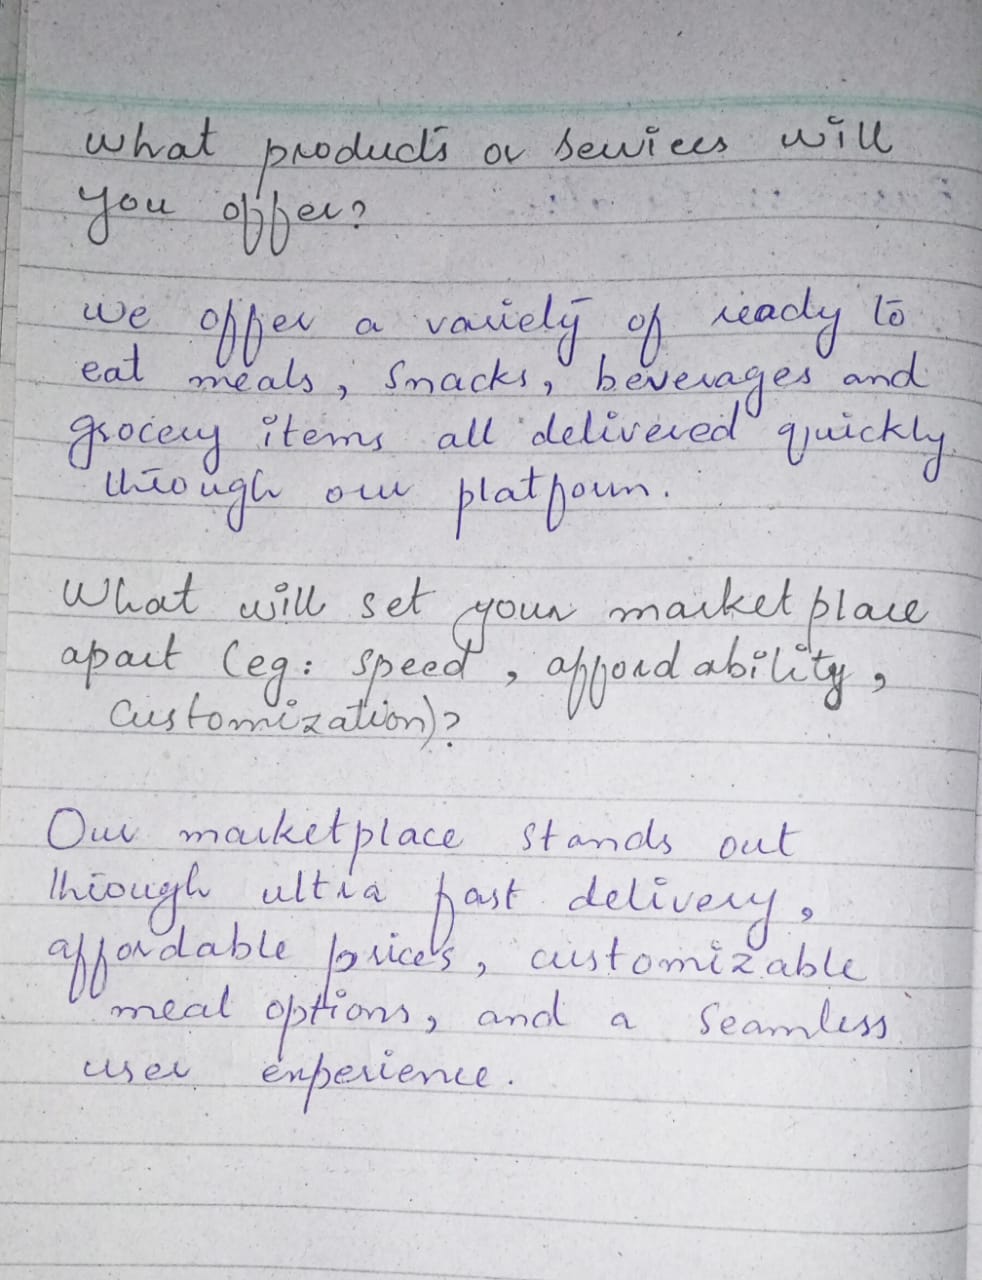 What products or services will
you offer?
We offer a variety of ready to
eat meals, Snacks, beverages and
grocery items all delivered quickly
through our platform.
What will set your marketplace
apart (eg: speed, affordability,
Customization)?
Our marketplace stands out
through ultra fast delivery,
affordable prices, customizable
meal options, and a seamless
user experience.